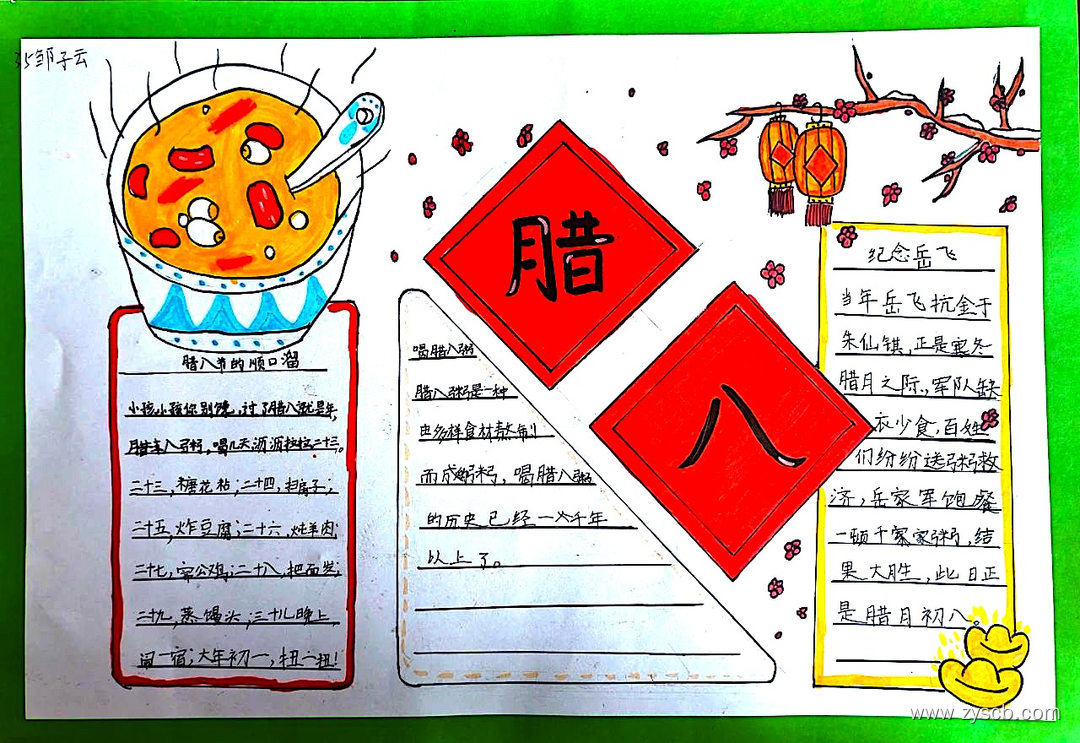 35邹子云
腊八
腊八节的顺口溜
小孩小孩你别馋，过了腊八就是年，
腊八粥，喝几天，沥沥拉拉二十三。
二十三，糖花粘；二十四，扫房子；
二十五，炸豆腐；二十六，炖羊肉；
二十七，宰公鸡；二十八，把面发；
二十九，蒸馒头；三十儿晚上
闹一宿；大年初一，扭一扭！
喝腊八粥
腊八粥是一种
由多样食材熬制
而成粥粥，喝腊八粥
的历史已经一千年
以上了。
纪念岳飞
当年岳飞抗金于
朱仙镇，正是寒冬
腊月之际，军队缺
衣少食，百姓
们纷纷送粥救
济，岳家军饱餐
一顿千家粥，结
果大胜，此日正
是腊月初八。
www.zyscb.com